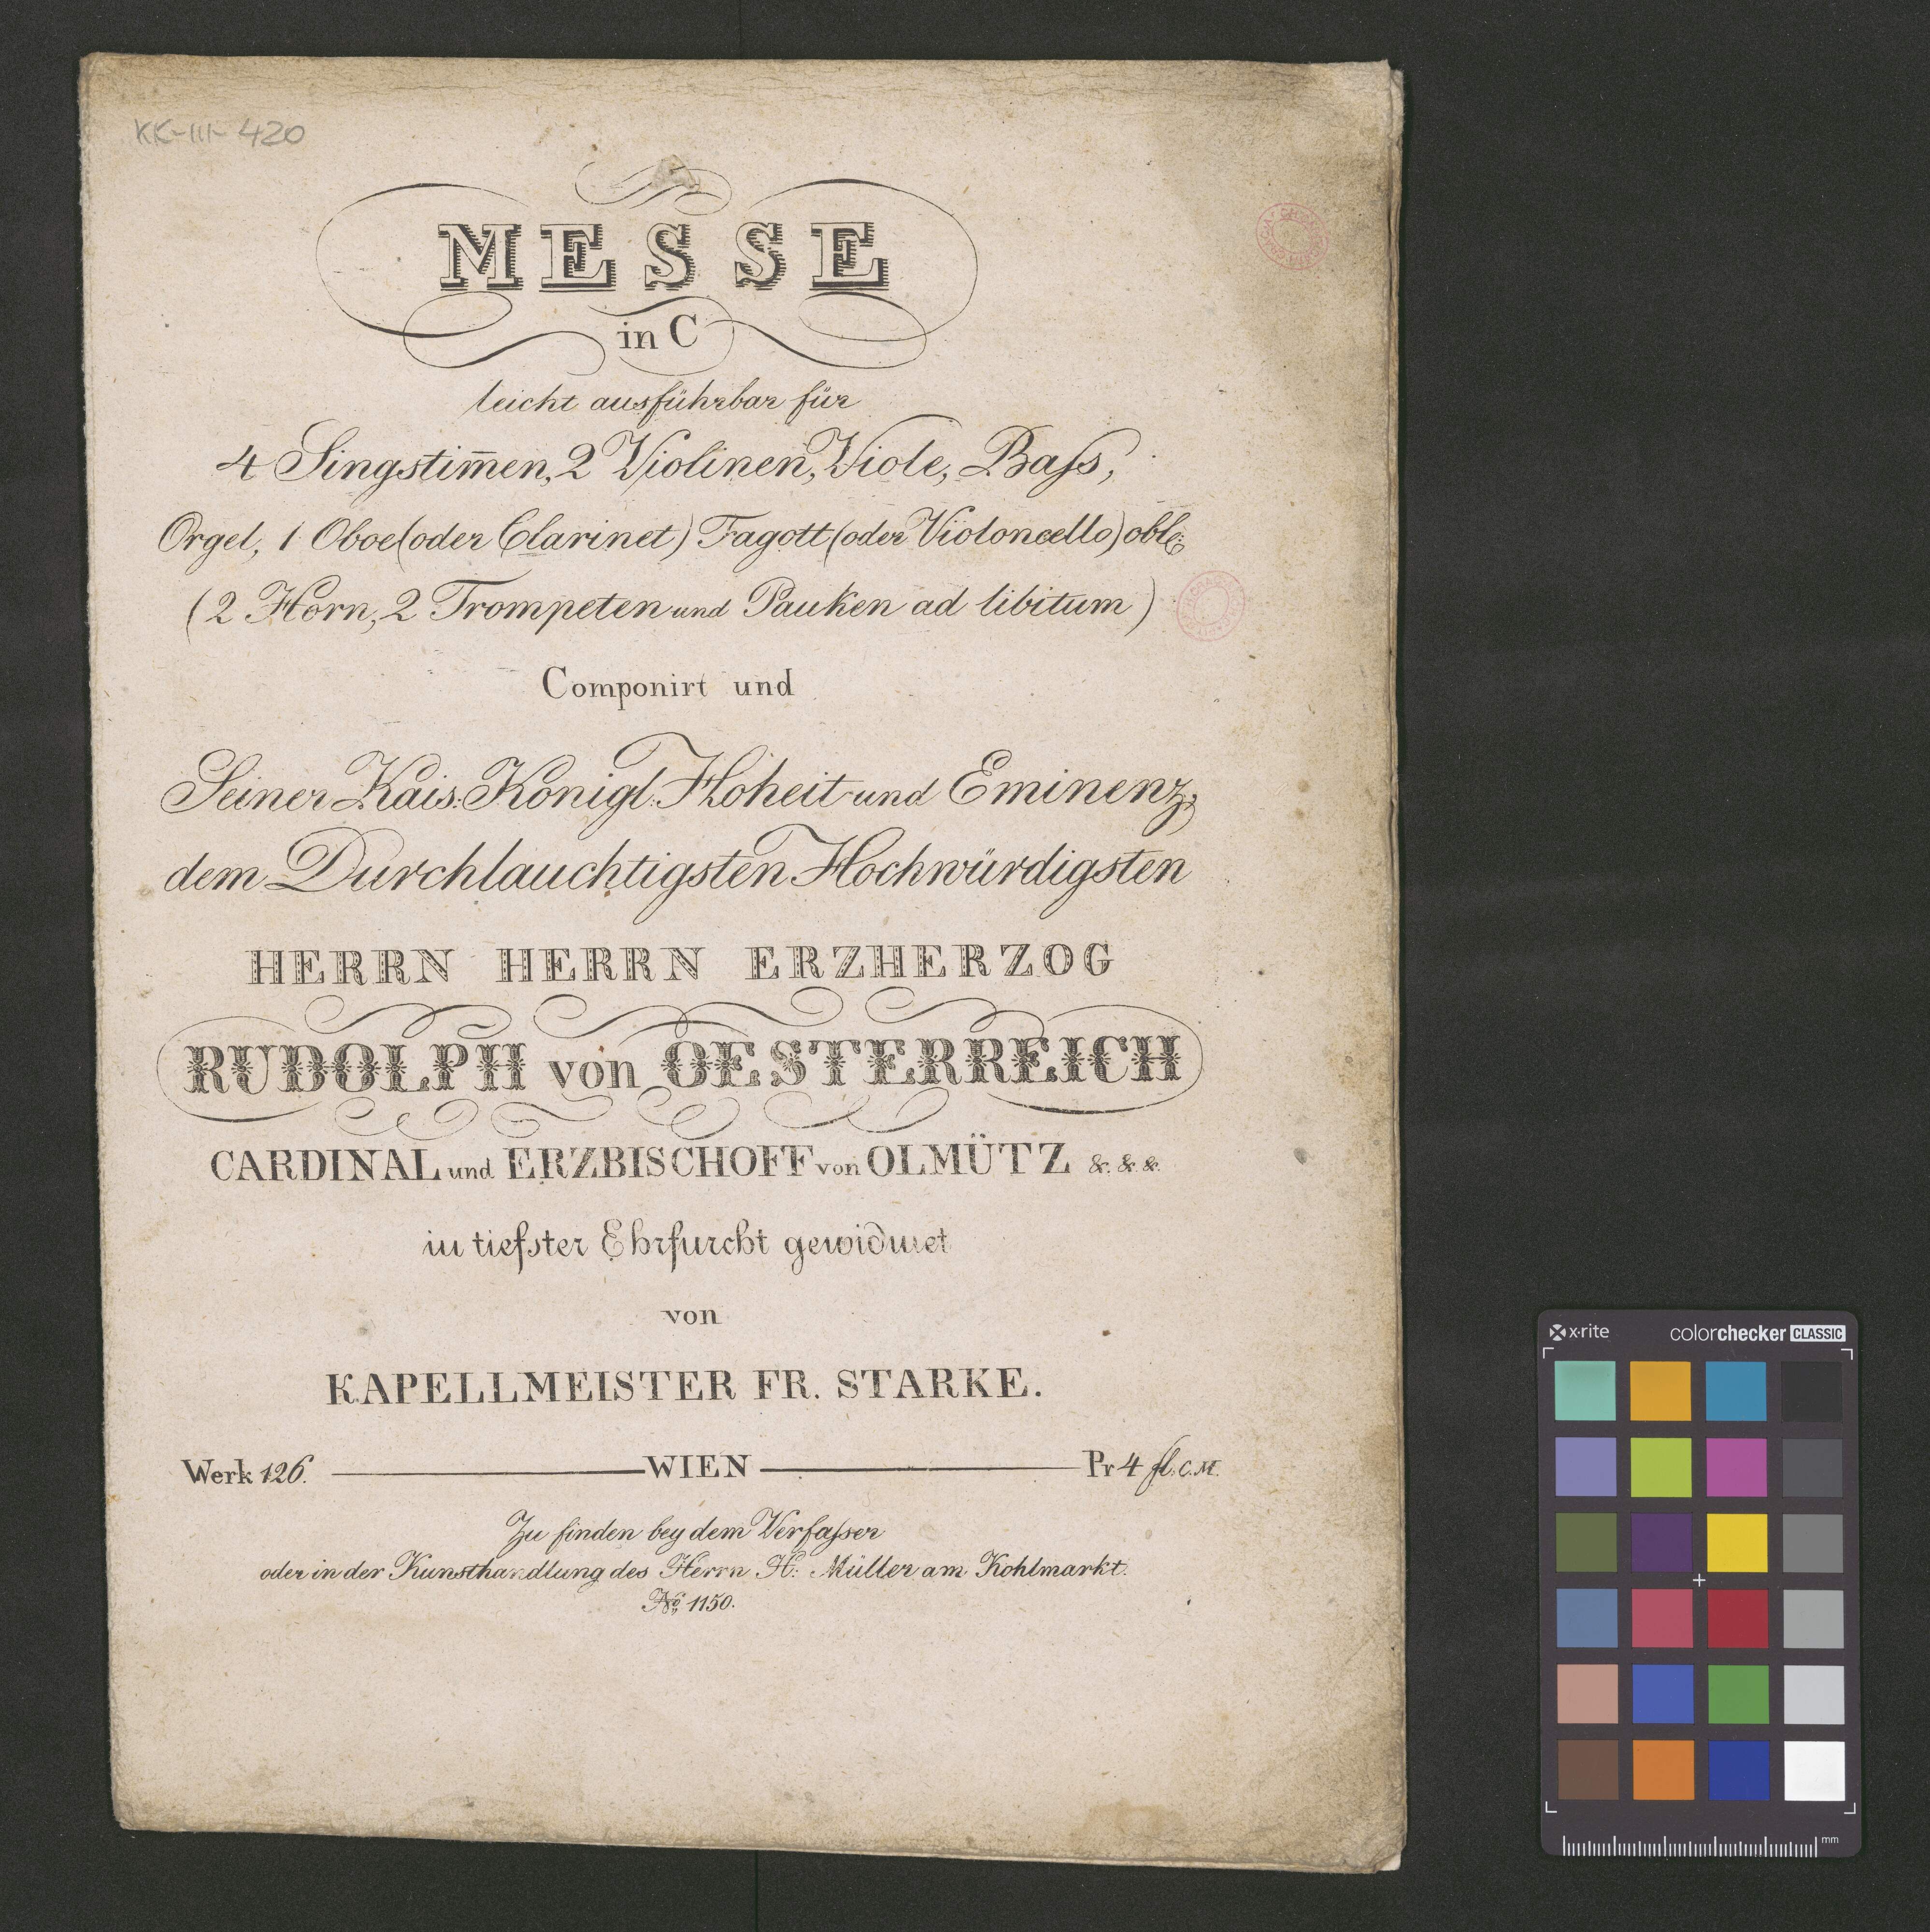 KK-III-420
MESSE
in C
leicht ausführbar für
4 Singstim̄en, 2 Violinen, Viole, Baſs,
Orgel, 1 Oboe (oder Clarinet) Fagott (oder Violoncello) oblg:
(2 Horn, 2 Trompeten und Pauken ad libitum)
Componirt und
Seiner Kais: Königl: Hoheit und Eminenz,
dem Durchlauchtigsten Hochwürdigsten
HERRN HERRN ERZHERZOG
RUDOLPH von OESTERREICH
CARDINAL und ERZBISCHOFF von OLMÜTZ &. &. &.
in tiefster Ehrfurcht gewidmet
von
KAPELLMEISTER FR. STARKE.
Werk 126. WIEN Pr 4 fl. C.M.
Zu finden bey dem Verfaſser
oder in der Kunsthandlung des Herrn H: Müller am Kohlmarkt.
No 1150.
x·rite colorchecker CLASSIC
mm